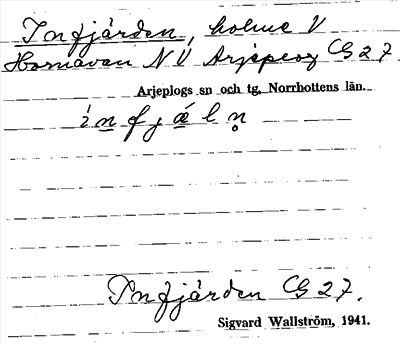 Infjärden, holme V
Hornavan NV Arjeplog CG 27
Arjeplogs sn och tg, Norrbottens län.
ìnfjæln̥
Infjärden CG 27.
Sigvard Wallström, 1941.